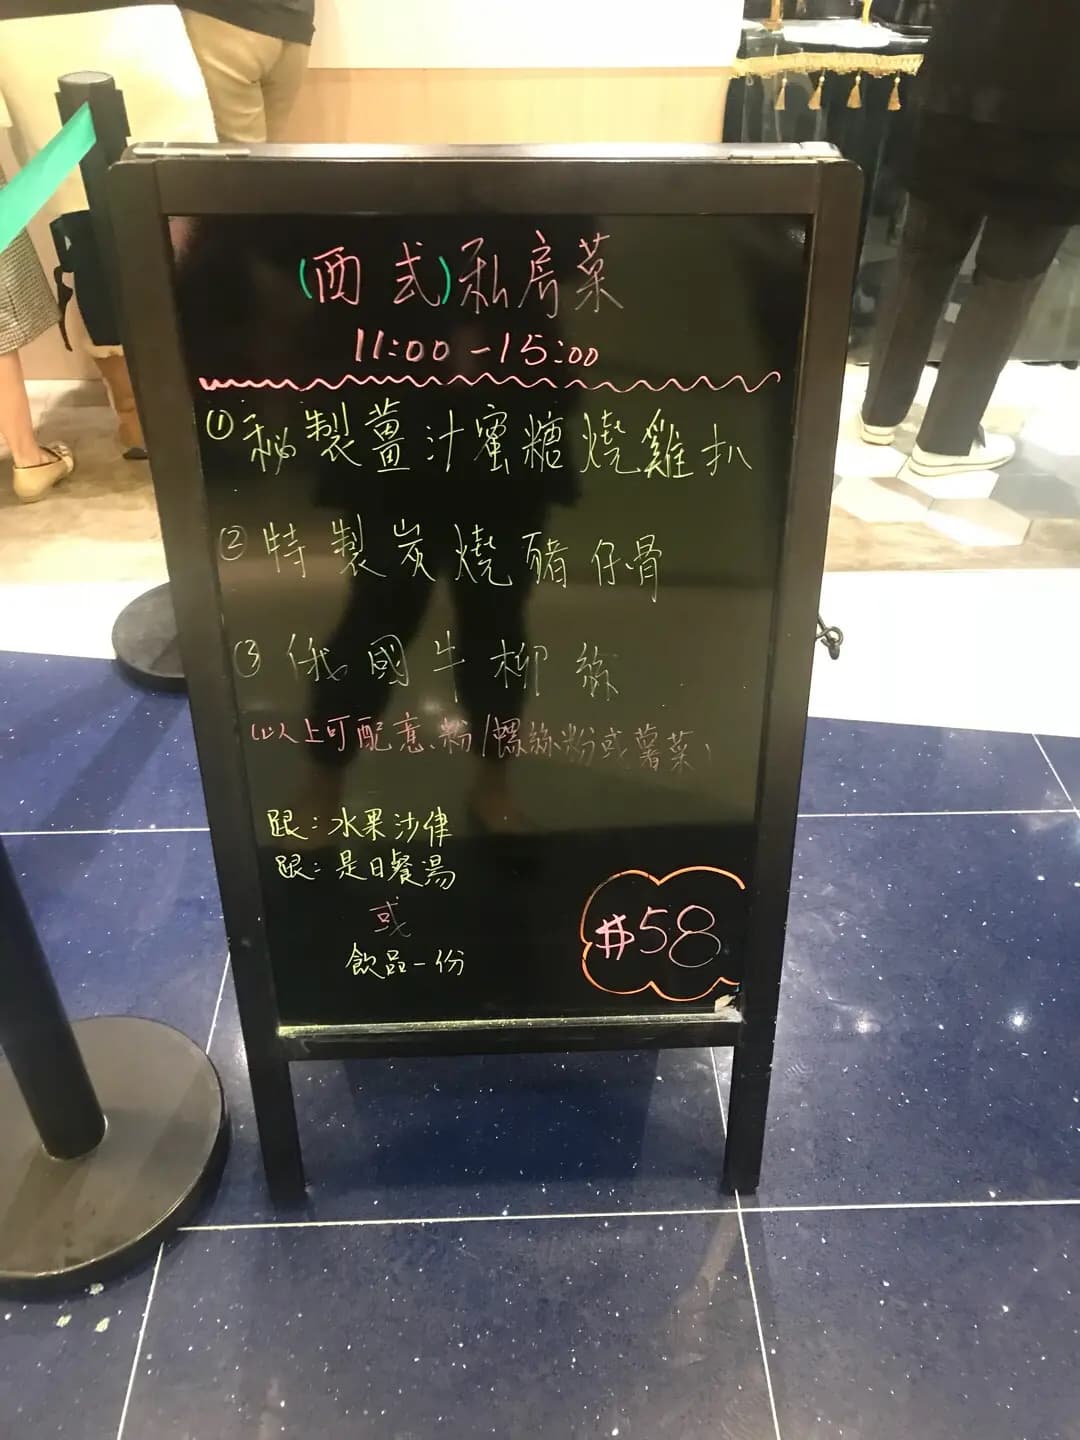 (西式)私房菜
11:00-15:00
① 秘製薑汁蜜糖燒雞扒
② 特製炭燒豬仔骨
③ 俄國牛柳絲
(以上可配意粉/螺絲粉或薯菜)
跟：水果沙律
跟：是日餐湯
或
飲品一份
$58